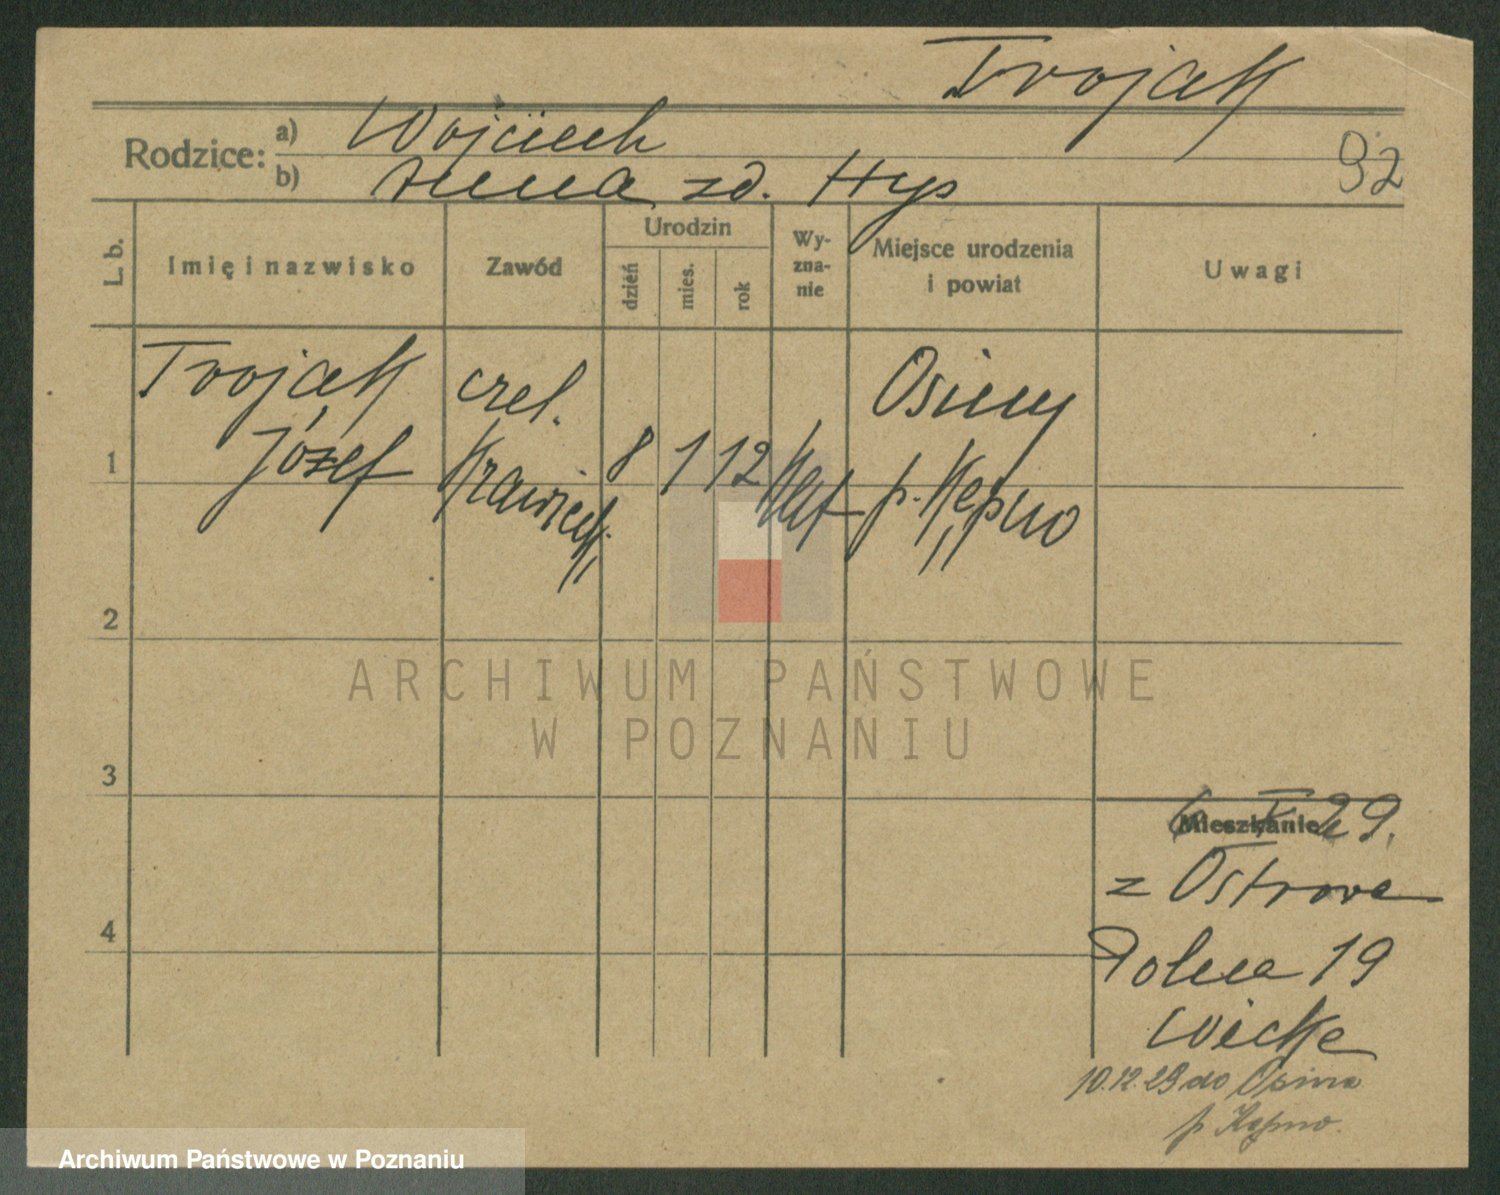 Trojak
Rodzice: a) Wojciech
b) Anna zd. Hys
92
L. b.
Imię i nazwisko
Zawód
Urodzin
dzień
mies.
rok
Wy-
zna-
nie
Miejsce urodzenia
i powiat
Uwagi
1
Trojak
Józef
czel.
krawieck.
8
1
12
kat
Osiny
p. Kępno
2
3
4
Mieszkanie
29.
z Ostrowa
Polna 19
Wicke
10.12.29 do Osina
p. Kępno.
ARCHIWUM PAŃSTWOWE
W POZNANIU
Archiwum Państwowe w Poznaniu